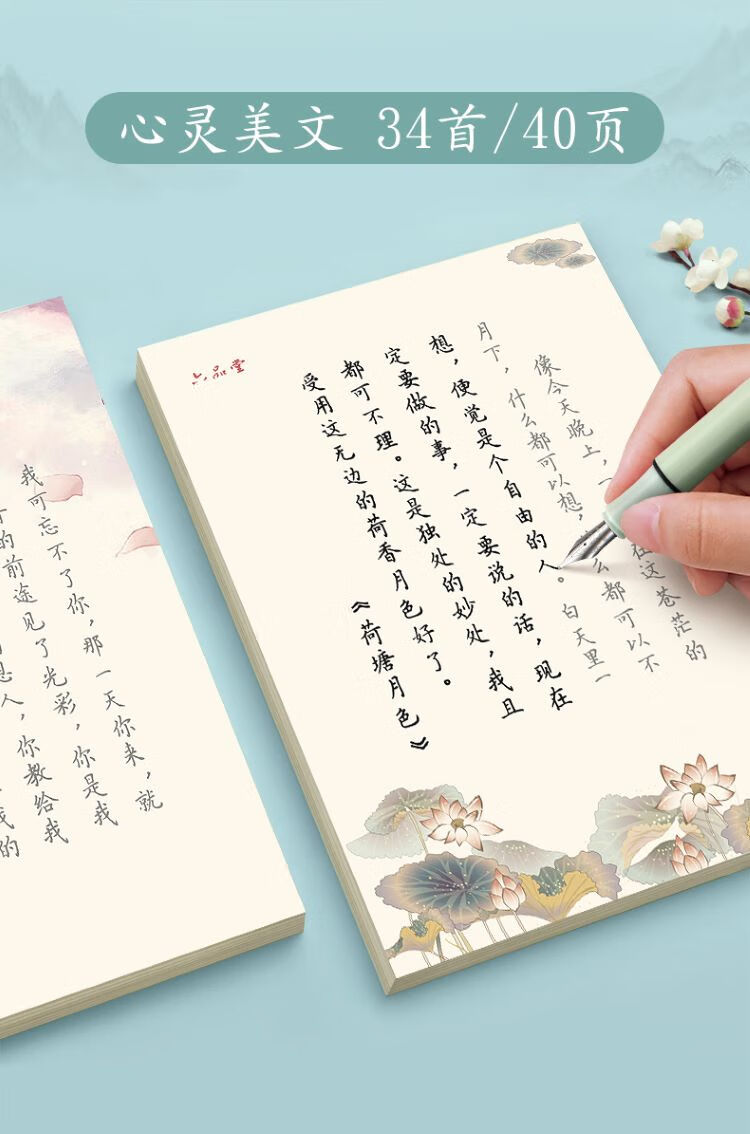 心灵美文 34首/40页
六品堂
像今天晚上，一在这苍茫的
月下，什么都可以想，么都可以不
想，便觉是个自由的人。白天里一
定要做的事，一定要说的话，现在
都可不理。这是独处的妙处，我且
受用这无边的荷香月色好了。
《荷塘月色》
我可忘不了你，那一天你来，就
的前途见了光彩，你是我
恩人，你教给我
的